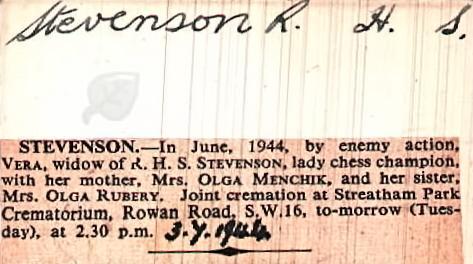 Stevenson R. H. S.
STEVENSON.—In June, 1944, by enemy action,
VERA, widow of R. H. S. STEVENSON, lady chess champion,
with her mother, Mrs. OLGA MENCHIK, and her sister,
Mrs. OLGA RUBERY. Joint cremation at Streatham Park
Crematorium, Rowan Road, S.W.16, to-morrow (Tues-
day), at 2.30 p.m. 3.7.1944